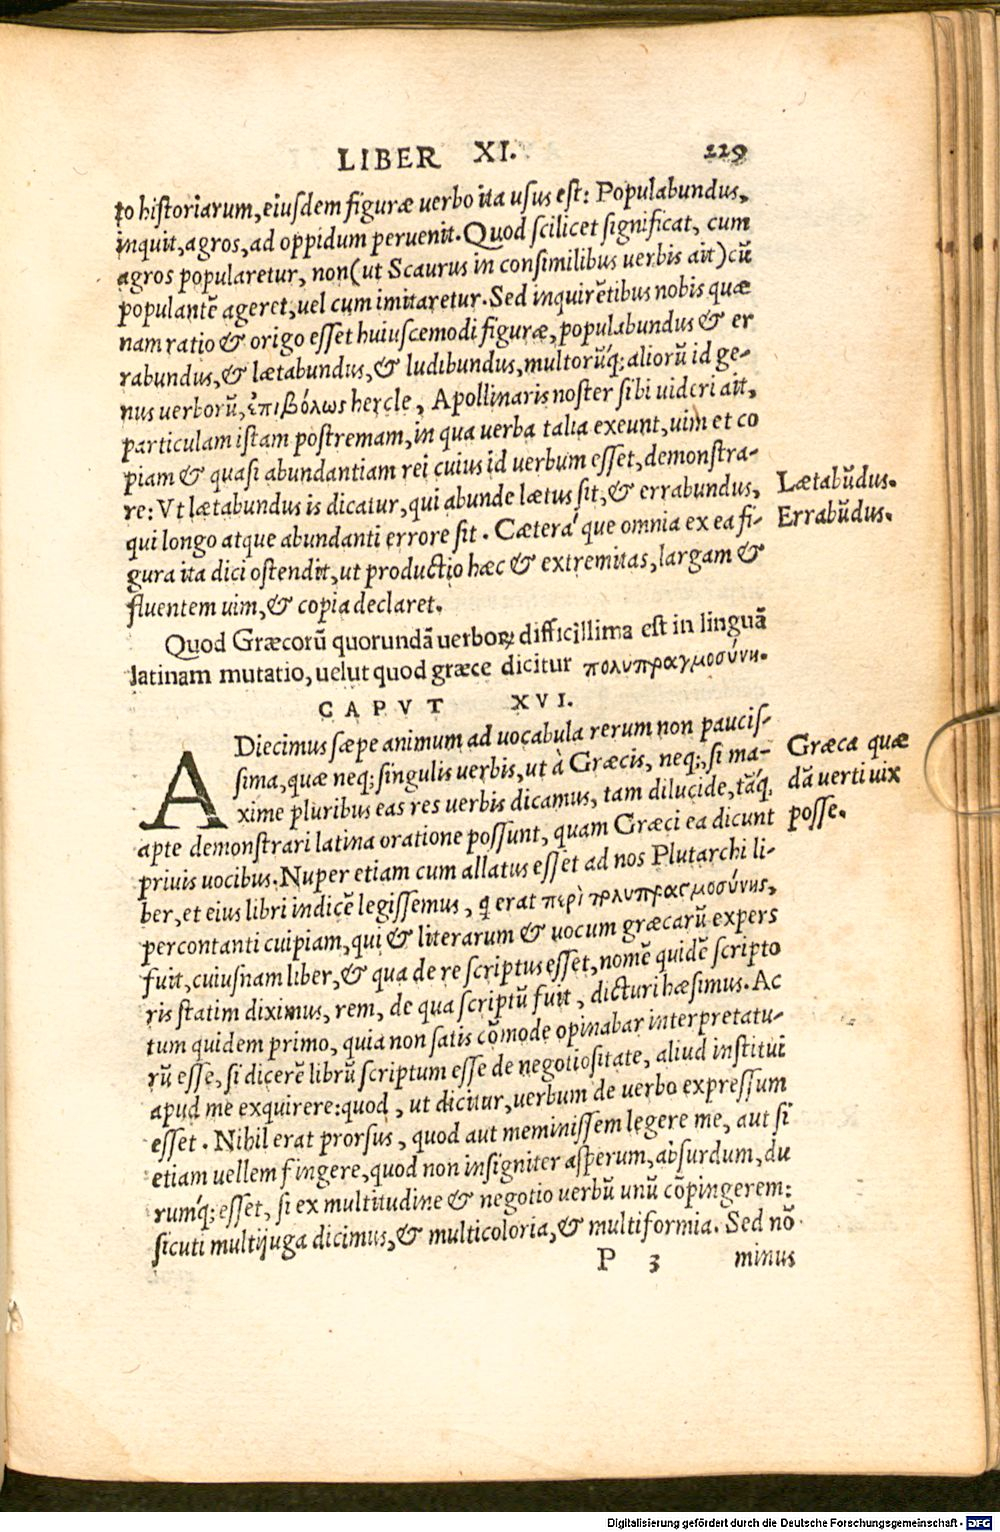 LIBER XI. 229
to historiarum, eiusdem figuræ uerbo ita usus est: Populabundus,
inquit, agros, ad oppidum peruenit. Quod scilicet significat, cum
agros popularetur, non (ut Scaurus in consimilibus uerbis ait) cũ
populantẽ ageret, uel cum imitaretur. Sed inquirẽtibus nobis quæ
nam ratio & origo esset huiuscemodi figuræ, populabundus & er
rabundus, & lætabundus, & ludibundus, multorũq́; aliorũ id ge-
nus uerborũ, ἐπιβόλως hercle, Apollinaris noster sibi uideri ait,
particulam istam postremam, in qua uerba talia exeunt, uim et co
piam & quasi abundantiam rei cuius id uerbum esset, demonstra-
re: Vt lætabundus is dicatur, qui abunde lætus sit, & errabundus,
Lætabũdus.
Errabũdus.
qui longo atque abundanti errore sit. Cætera' que omnia ex ea fi-
gura ita dici ostendit, ut productio hæc & extremitas, largam &
fluentem uim, & copia declaret.
Quod Græcorũ quorundã uerboꝝ difficillima est in linguã
latinam mutatio, uelut quod græce dicitur πολυπραγμοσύνη.
CAPVT XVI.
ADiecimus sæpe animum ad uocabula rerum non paucis-
sima, quæ neq; singulis uerbis, ut à Græcis, neq;, si ma-
xime pluribus eas res uerbis dicamus, tam dilucide, tãq́;
Græca quæ
dã uerti uix
posse.
apte demonstrari latina oratione possunt, quam Græci ea dicunt
priuis uocibus. Nuper etiam cum allatus esset ad nos Plutarchi li-
ber, et eius libri indicẽ legissemus, q erat περὶ πολυπραγμοσύνης,
percontanti cuipiam, qui & literarum & uocum græcarũ expers
fuit, cuiusnam liber, & qua de re scriptus esset, nomẽ quidẽ scripto
ris statim diximus, rem, de qua scriptũ fuit, dicturi hæsimus. Ac
tum quidem primo, quia non satis cõmode opinabar interpretatu-
rũ esse, si dicerẽ librũ scriptum esse de negotiositate, aliud institui
apud me exquirere: quod, ut dicitur, uerbum de uerbo expressum
esset. Nihil erat prorsus, quod aut meminissem legere me, aut si
etiam uellem fingere, quod non insigniter asperum, absurdum, du
rumq́; esset, si ex multitudine & negotio uerbũ unũ cõpingerem:
sicuti multijuga dicimus, & multicoloria, & multiformia. Sed nõ
P 3 minus
Digitalisierung gefördert durch die Deutsche Forschungsgemeinschaft - DFG